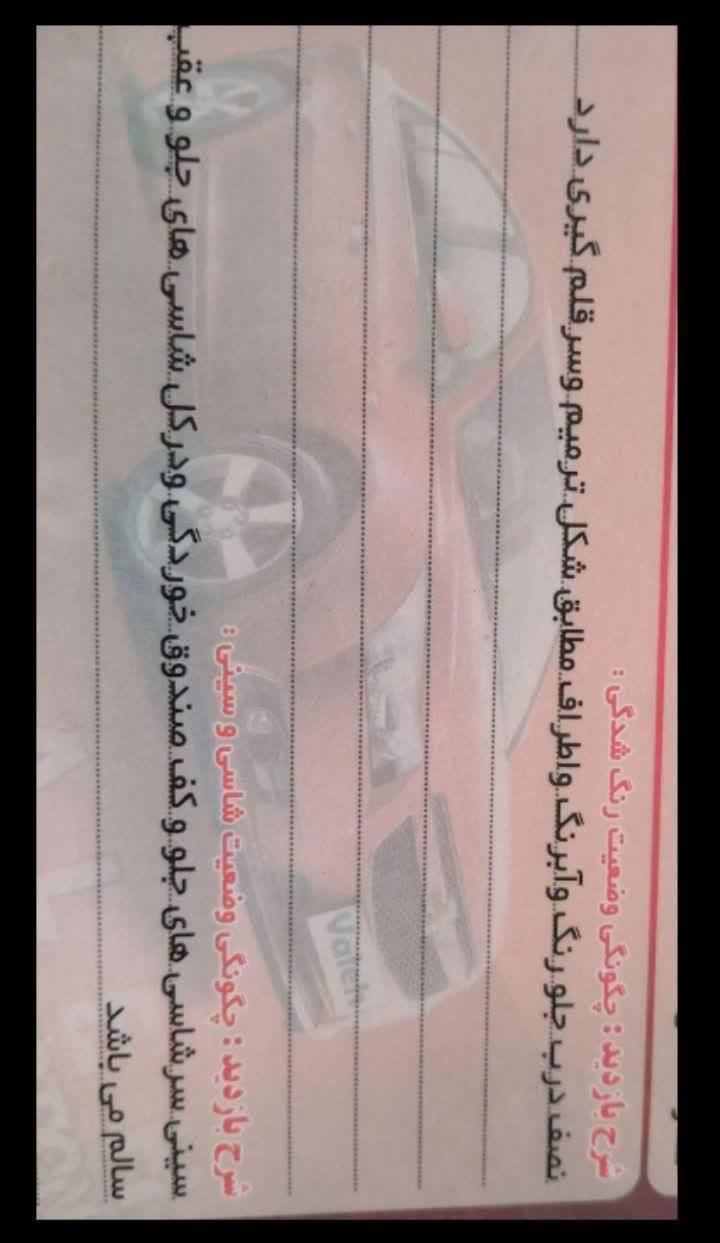 شرح بازدید : چگونگی وضعیت رنگ شدگی :
نصف درب جلو رنگ وآبرنگ واطراف مطابق شکل ترمیم وسر قلم گیری دارد
شرح بازدید : چگونگی وضعیت شاسی و سینی :
سینی سر شاسی های جلو و کف صندوق خوردگی ودر کل شاسی های جلو و عقب
سالم می باشد